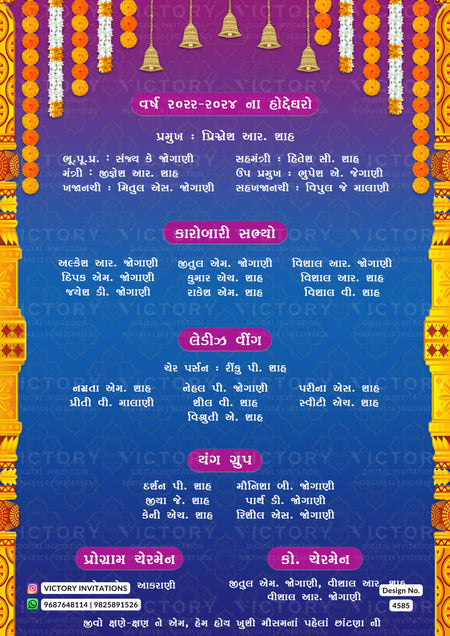 વર્ષ ૨૦૨૨-૨૦૨૪ ના હોદ્દેદારો
પ્રમુખ : પ્રિગ્નેશ આર. શાહ
ભૂ.પૂ.પ્ર. : સંજય કે જોગાણી સહમંત્રી : હિતેશ સી. શાહ
મંત્રી : જીજ્ઞેશ આર. શાહ ઉપ પ્રમુખ : ભુપેશ એ. જેગાણી
ખજાનચી : મિતુલ એસ. જોગાણી સહખજાનચી : વિપુલ જે માલાણી
કારોબારી સભ્યો
અલ્કેશ આર. જોગાણી જીતુલ એમ. જોગાણી વિશાલ આર. જોગાણી
દિપક એમ. જોગાણી કુમાર એચ. શાહ વિશાલ આર. શાહ
જયેશ ડી. જોગાણી રાકેશ એમ. શાહ વિશાલ વી. શાહ
લેડીઝ વીંગ
ચેર પર્સન : રીંકુ પી. શાહ
નમ્રતા એમ. શાહ નેહલ પી. જોગાણી પરીના એસ. શાહ
પ્રીતી વી. માલાણી શીલ વી. શાહ સ્વીટી એચ. શાહ
વિશ્રુતી એ. શાહ
યંગ ગ્રુપ
દર્શન પી. શાહ મૌનિશા બી. જોગાણી
જીયા જે. શાહ પાર્થ ડી. જોગાણી
કેની એચ. શાહ રિશીલ એસ. જોગાણી
પ્રોગ્રામ ચેરમેન કો. ચેરમેન
VICTORY INVITATIONS
9687648114 | 9825891526
આકરાણી
જીતુલ એમ. જોગાણી, વીશાલ આર. શાહ
વીશાલ આર. જોગાણી
Design No.
4585
જીવો ક્ષણે-ક્ષણ ને એમ, હેમ હોય ખુશી મૌસમનાં પહેલાં છાંટણા ની